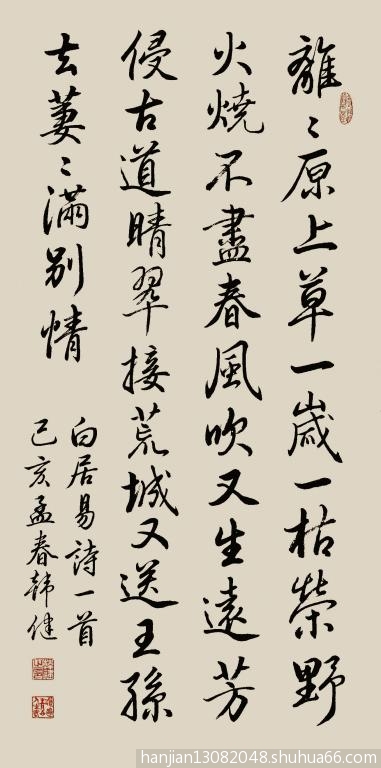 離〻原上草一歲一枯榮野
火燒不盡春風吹又生遠芳
侵古道晴翠接荒城又送王孫
去萋〻滿別情
白居易詩一首
己亥孟春韓健
hanjian13082048.shuhua66.com